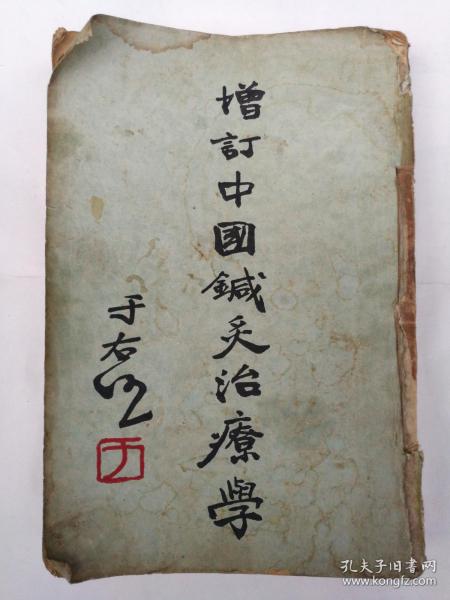 增訂中國鍼灸治療學
于右任
于
孔夫子旧书网
www.kongfz.com